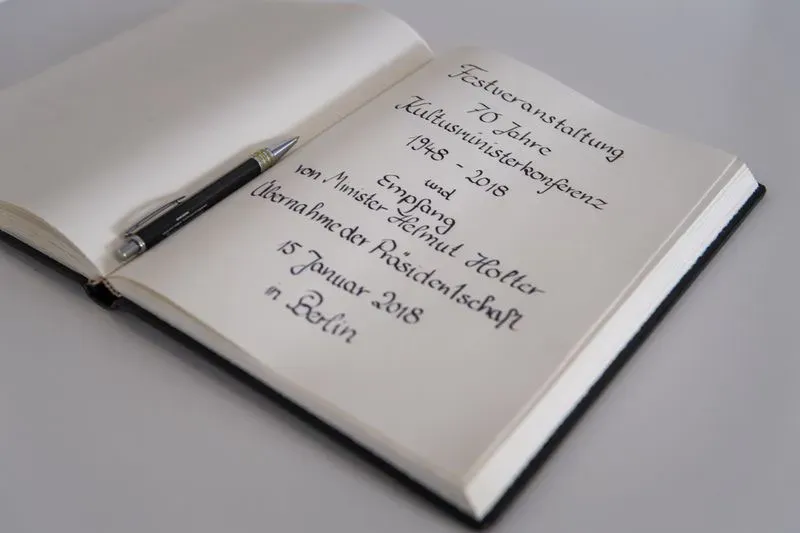 Festveranstaltung
70 Jahre
Kultusministerkonferenz
1948 - 2018
und
Empfang
von Minister Helmut Holter
Übernahme der Präsidentschaft
15 Januar 2018
in Berlin